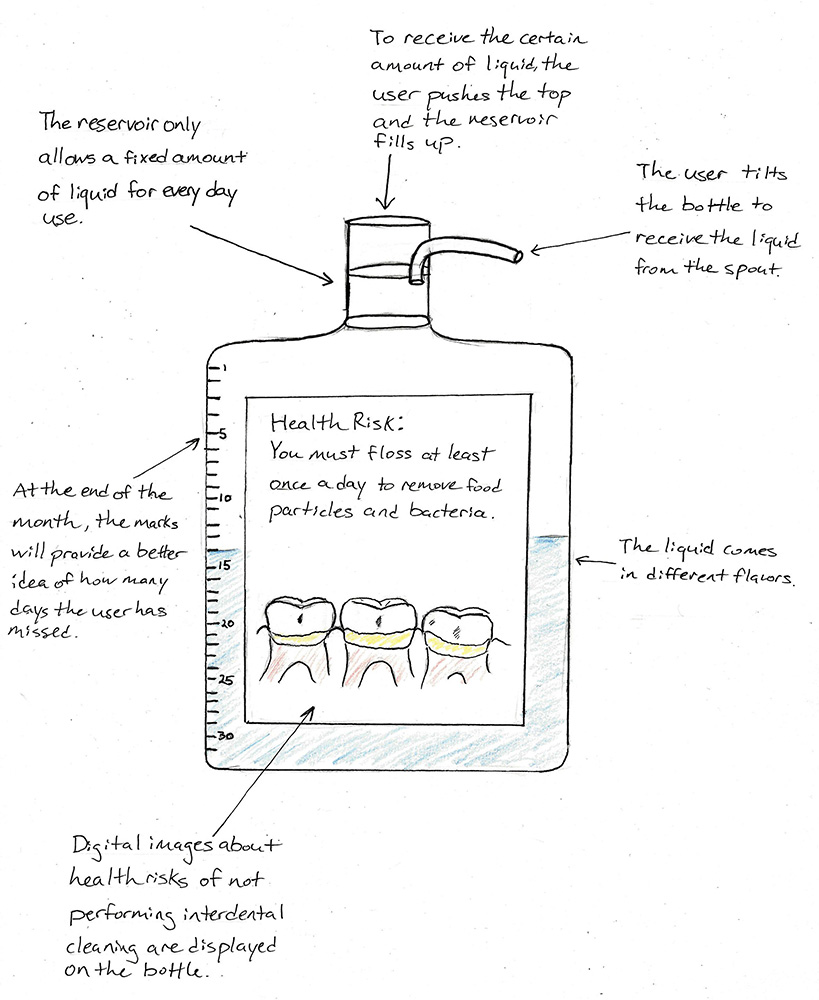 To receive the certain
amount of liquid, the
user pushes the top
and the reservoir
fills up.
The reservoir only
allows a fixed amount
of liquid for every day
use.
The user tilts
the bottle to
receive the liquid
from the spout.
1
5
10
15
20
25
30
Health Risk:
You must floss at least
once a day to remove food
particles and bacteria.
At the end of the
month, the marks
will provide a better
idea of how many
days the user has
missed.
The liquid comes
in different flavors.
Digital images about
health risks of not
performing interdental
cleaning are displayed
on the bottle.